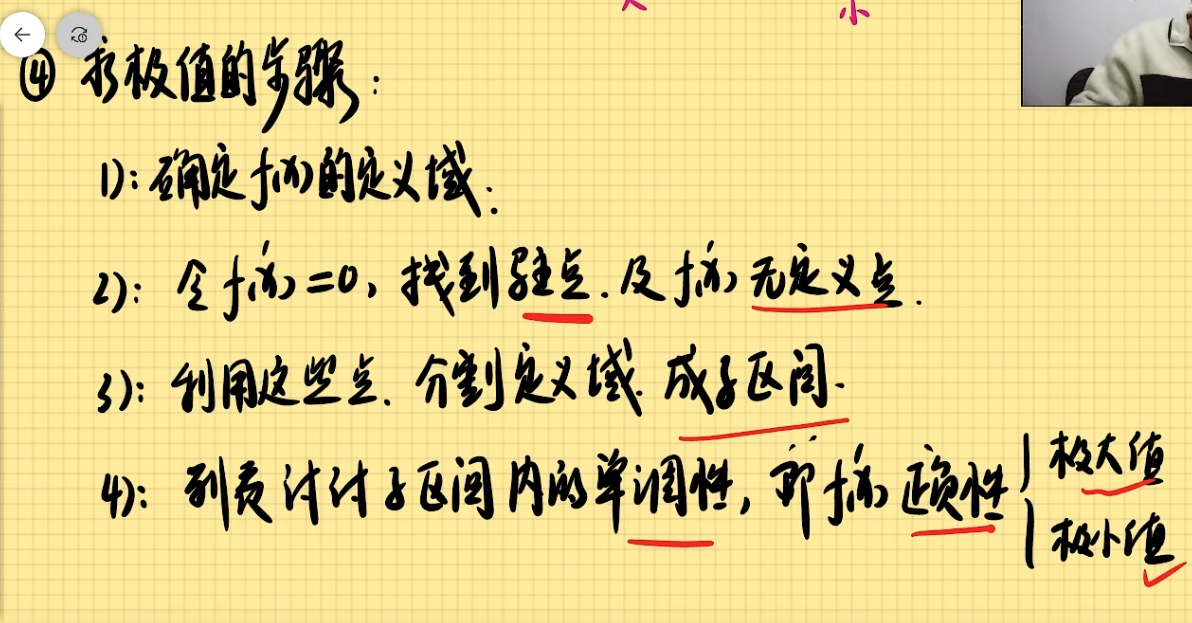 大 小
④ 求极值的步骤:
1): 确定f(x)的定义域.
2): 令f'(x)=0, 找到驻点.及f'(x)无定义点.
3): 利用这些点.分割定义域.成子区间.
4): 列表讨讨子区间内的单调性, 即f'(x)正负性
极大值
极小值